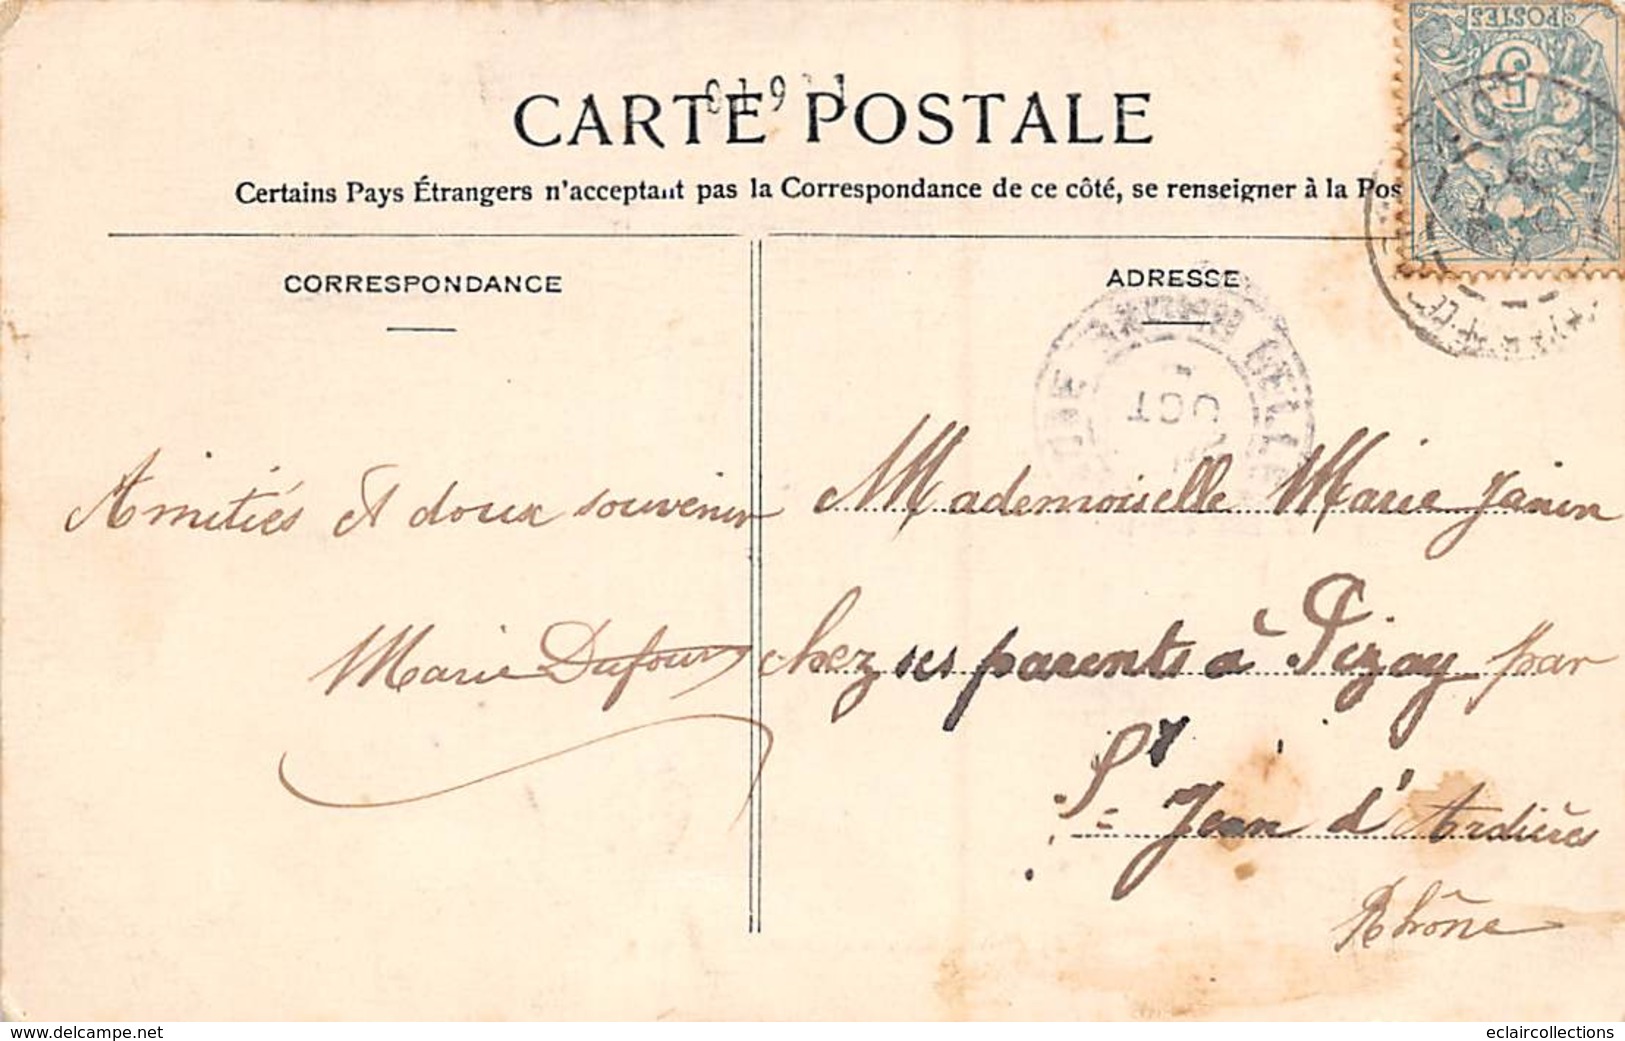 CARTE POSTALE
Certains Pays Étrangers n'acceptant pas la Correspondance de ce côté, se renseigner à la Pos
POSTES
5
CORRESPONDANCE
ADRESSE
OCT
Amitiés et doux souvenir
Marie Dufour
Mademoiselle Marie Janin
chez ses parents à Pizay par
St Jean d'Ardières
Rhône
www.delcampe.net
eclaircollections